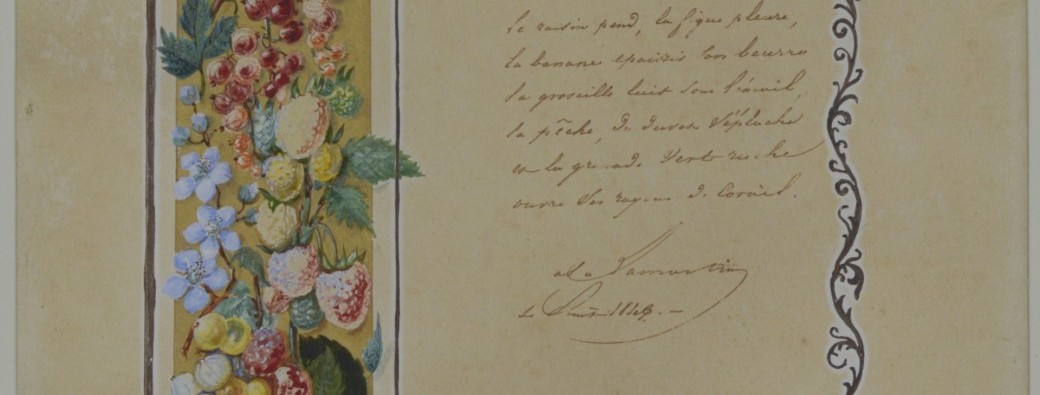 le raisin pend, la figue pleure,
la banane épaissit son beurre
la groseille luit sous l'émail,
la pêche, de duvet s'épluche
et la grenade verte ruche
ouvre ses rayons de corail.
Al. de Lamartine